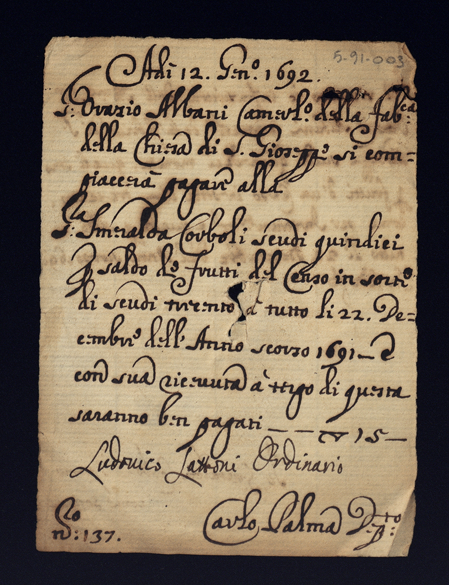 5-91-003
Adi 12. Genº. 1692.
Sr. Orazio Albani Camerlº. della fabca.
della Chiesa di S. Giuseppe si com=
piaccerà pagare alla
Sra. Smeralda Corboli scudi quindici
p saldo de frutti del Censo in sorte
di scudi trecento à tutto li 22. De=
cembre dell' Anno scorso 1691 – e
con sua ricevuta à tergo di questa
saranno ben pagati — — 15 —
Ludovico Ordinario
Carlo Palma
nº: 137.